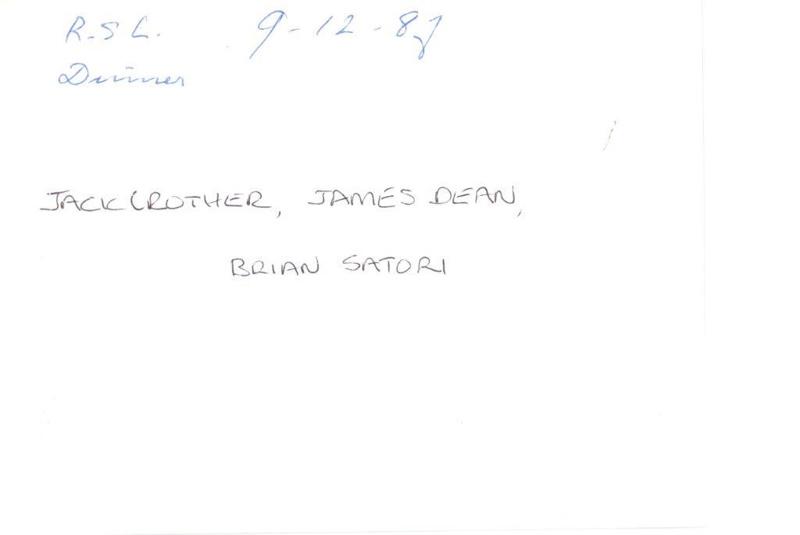 R.S L. 9-12-87
Dinner
JACK CROTHER, JAMES DEAN,
BRIAN SATORI